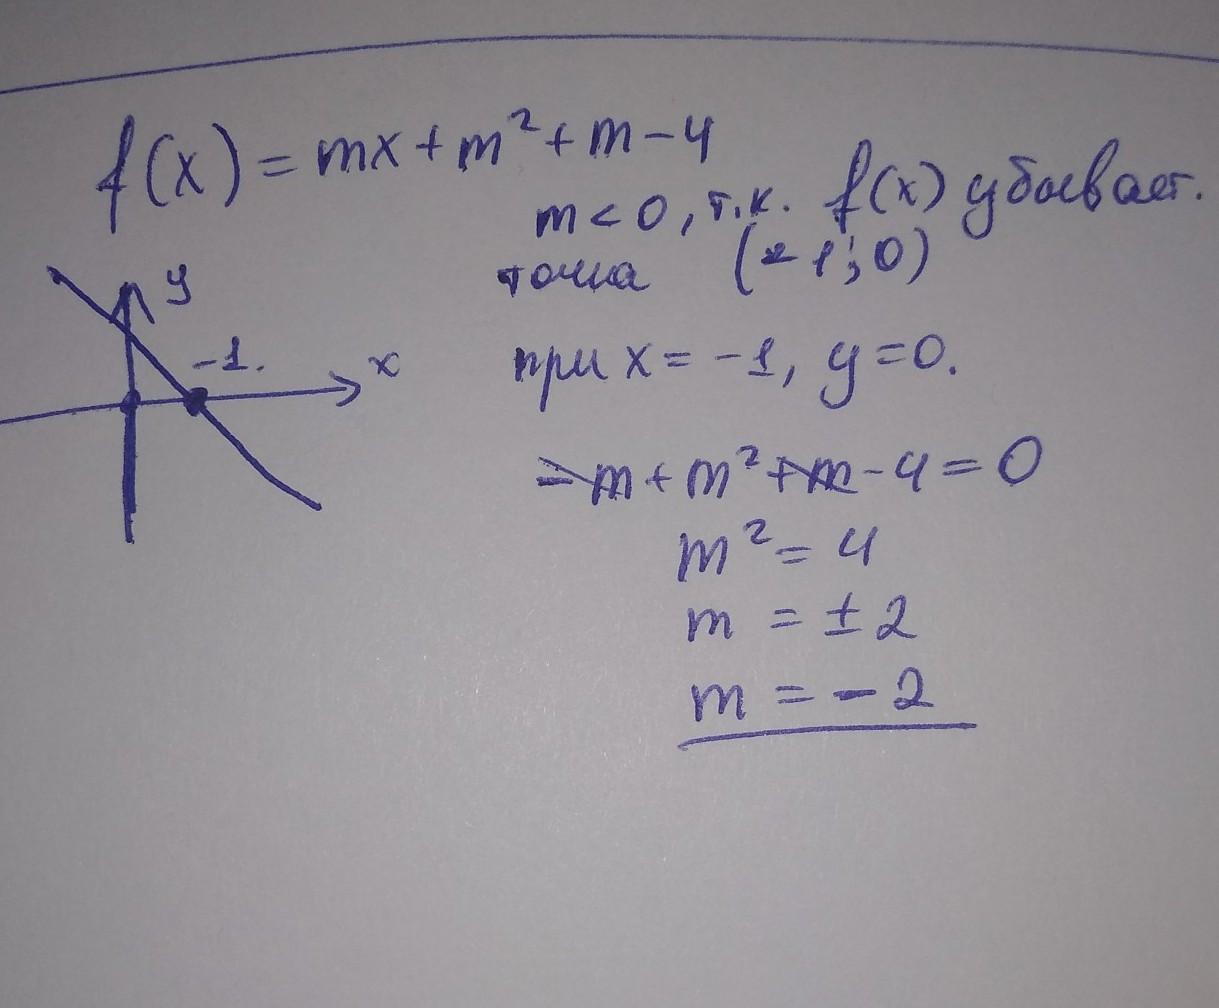 f(x) = mx + m² + m - 4
m < 0, т.к. f(x) убывает.
точка (-1; 0)
y
-1.
x
при x = -1, y = 0.
-m + m² + m - 4 = 0
m² = 4
m = ± 2
m = - 2